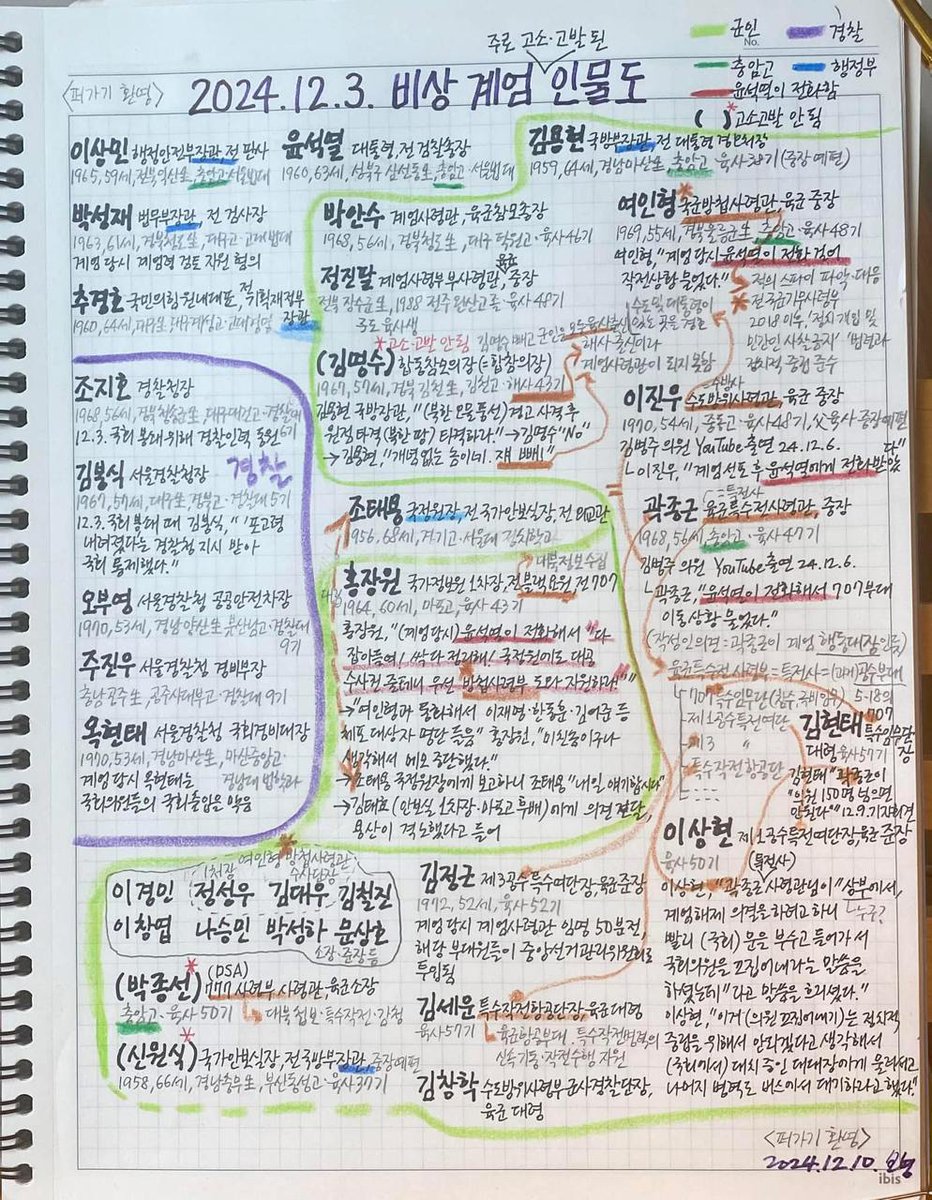 주로 고소·고발된
군인
No.
경찰
충암고
행정부
윤석열이 전화함
( )* 고소고발 안 됨
<퍼가기 환영>
2024.12.3. 비상 계엄 인물도
이상민 행정안전부장관, 전 판사
1965, 59세, 전북익산生, 충암고·서울법대
윤석열 대통령, 전 검찰총장
1960, 63세, 성북구 삼선동生, 충암고·서울법대
김용현 국방부장관, 전 대통령경호처장
1959, 64세, 경남마산生, 충암고·육사38기 (중장 예편)
박성재 법무부장관, 전 검사장
1963, 61세, 경북청도生, 대구고·고대법대
계엄 당시 계엄령 검토 지원 혐의
추경호 국민의힘 원내대표, 전 기획재정부
장관
1960, 64세, 대구生, 대구계성고·고대경영
박안수 계엄사령관, 육군참모총장
1968, 56세, 경북청도生, 대구 덕원고·육사46기
정진팔 계엄사령부 부사령관, 육군 중장
전북 장수군生, 1988 전주완산고졸·육사48기
3도 육사생
*고소·고발 안 됨
김명수 빼고 군인은 모두 육사출신
(김명수) 합동참모의장 (=합참의장)
1967, 57세, 경북 김천生, 김천고·해사43기
해사 출신이라
계엄사령관이 되지 못함
김용현 국방장관, "(북한 오물풍선) 경고 사격 후
원점 타격(북한 땅) 타격하라." → 김명수 "No"
→ 김용현, "개념 없는 놈이네. 쟤 빼!"
여인형* 국군방첩사령관, 육군 중장
1969, 55세, 경북울릉군生, 충암고·육사48기
여인형, "계엄 당시 윤석열이 전화 걸어
작전상황 물었다."
적의 스파이 파악·대응
전 국군기무사령부
2018 이후, '정치 개입 및
민간인 사찰 금지' '법령과
정치적 중립 준수
수도 및 대통령이
있는 곳을 경호
=수방사
이진우 수도방위사령관, 육군 중장
1970, 54세, 육사48기, 父 육사·중장예편
김병주 의원 YouTube 출연 24.12.6.
ㄴ이진우, "계엄 선포 후 윤석열에게 전화 받았다"
=특전사
곽종근 육군특수전사령관, 중장
1968, 56세, 충남고·육사47기
김병주 의원 YouTube 출연 24.12.6.
ㄴ곽종근, "윤석열이 전화해서 707부대
이동상황 물었다."
(작성인의견=곽종근이 계엄 행동대장인듯)
육군특수전사령부=특전사=(과거)공수부대
707 특수임무단
제1공수특전여단
제3 〃
특수작전항공단
5·18의
조지호 경찰청장
1968, 56세, 경북청송군生, 대구대건고·경찰대
6기
12.3. 국회 봉쇄 위해 경찰인력 동원
김봉식 서울경찰청장
경찰
1967, 57세, 대구生, 경북고·경찰대 5기
12.3. 국회 봉쇄 때 김봉식, "포고령
내려졌다는 경찰청 지시 받아
국회 통제했다."
오부명 서울경찰청 공공안전차장
1970, 53세, 경남양산生, 부산남고·경찰대
9기
주진우 서울경찰청 경비부장
충남공주生, 공주사대부고·경찰대 9기
옥현태 서울경찰청 국회경비대장
1970, 53세, 경남마산生, 마산중앙고·
경남대 법학과
계엄 당시 옥현태는
국회의원들의 국회출입을 막음
조태용 국정원장, 전 국가안보실장, 전 외교관
1956, 68세, 경기고·서울대 정치학과
대북정보수집
홍장원 국가정보원 1차장, 전 블랙요원, 전 707
1964, 60세, 마포고, 육사43기
홍장원, "(계엄당시) 윤석열이 전화해서 "다
잡아들여! 싹 다 정리해! 국정원에도 대공
수사권 줄테니 우선 방첩사령부 도와 지원하라""
→ "여인형과 통화해서 이재명·한동훈·김어준 등
체포 대상자 명단 들음" 홍장원, "미친놈이구나
생각해서 메모 중단했다."
→ 조태용 국정원장에게 보고하니 조태용 "내일 얘기합시다"
→ 김태효 (안보실 1차장)에게 의견 전달,
용산이 격노했다고 들어
김현태 707
특수임무단장
대령, 육사57기
김현태 "곽종근이
"의원 150명 넘으면
안된다" 12.9. 기자회견
이상현 제1공수특전여단장, 육군 준장
육사50기
(특전사)
이상현, "곽종근 사령관님이 "상부에서,
ㄴ누구?
계엄해제 의결을 하려고 하니
빨리 (국회) 문을 부수고 들어가서
국회의원을 끄집어내라는 말씀을
하셨는데"라고 말씀을 흐리셨다."
이상현, "이거 (의원 끄집어내기)는 정치적
중립을 위해서 안되겠다고 생각해서
(국회에서) 대치 중인 대대장에게 물러서고
나머지 병력도 버스에서 대기하라고 했다."
여인형 방첩사령관
1처장
수사단장
이경민 정성우 김대우 김철진
이창엽 나승민 박성하 문상호
소장·준장 등
김정근 제3공수특수여단장, 육군준장
1972, 52세, 육사52기
계엄 당시 계엄사령관 임명 50분 전
해당 부대원들이 중앙선거관리위원회로
투입됨
(DSA)
(박종선)* 777사령부 사령관, 육군소장
충암고·육사50기
대북첩보·특수작전·감청
(신원식)* 국가안보실장, 전 국방부장관, 중장예편
1958, 66세, 경남통영生, 부산동성고·육사37기
김세운 특수작전항공단장, 육군대령
육사57기
육군항공부대. 특수작전병력의
신속 기동·작전수행 지원
김창학 수도방위사령부 군사경찰단장,
육군 대령
<퍼가기 환영>
2024.12.10.
ibis